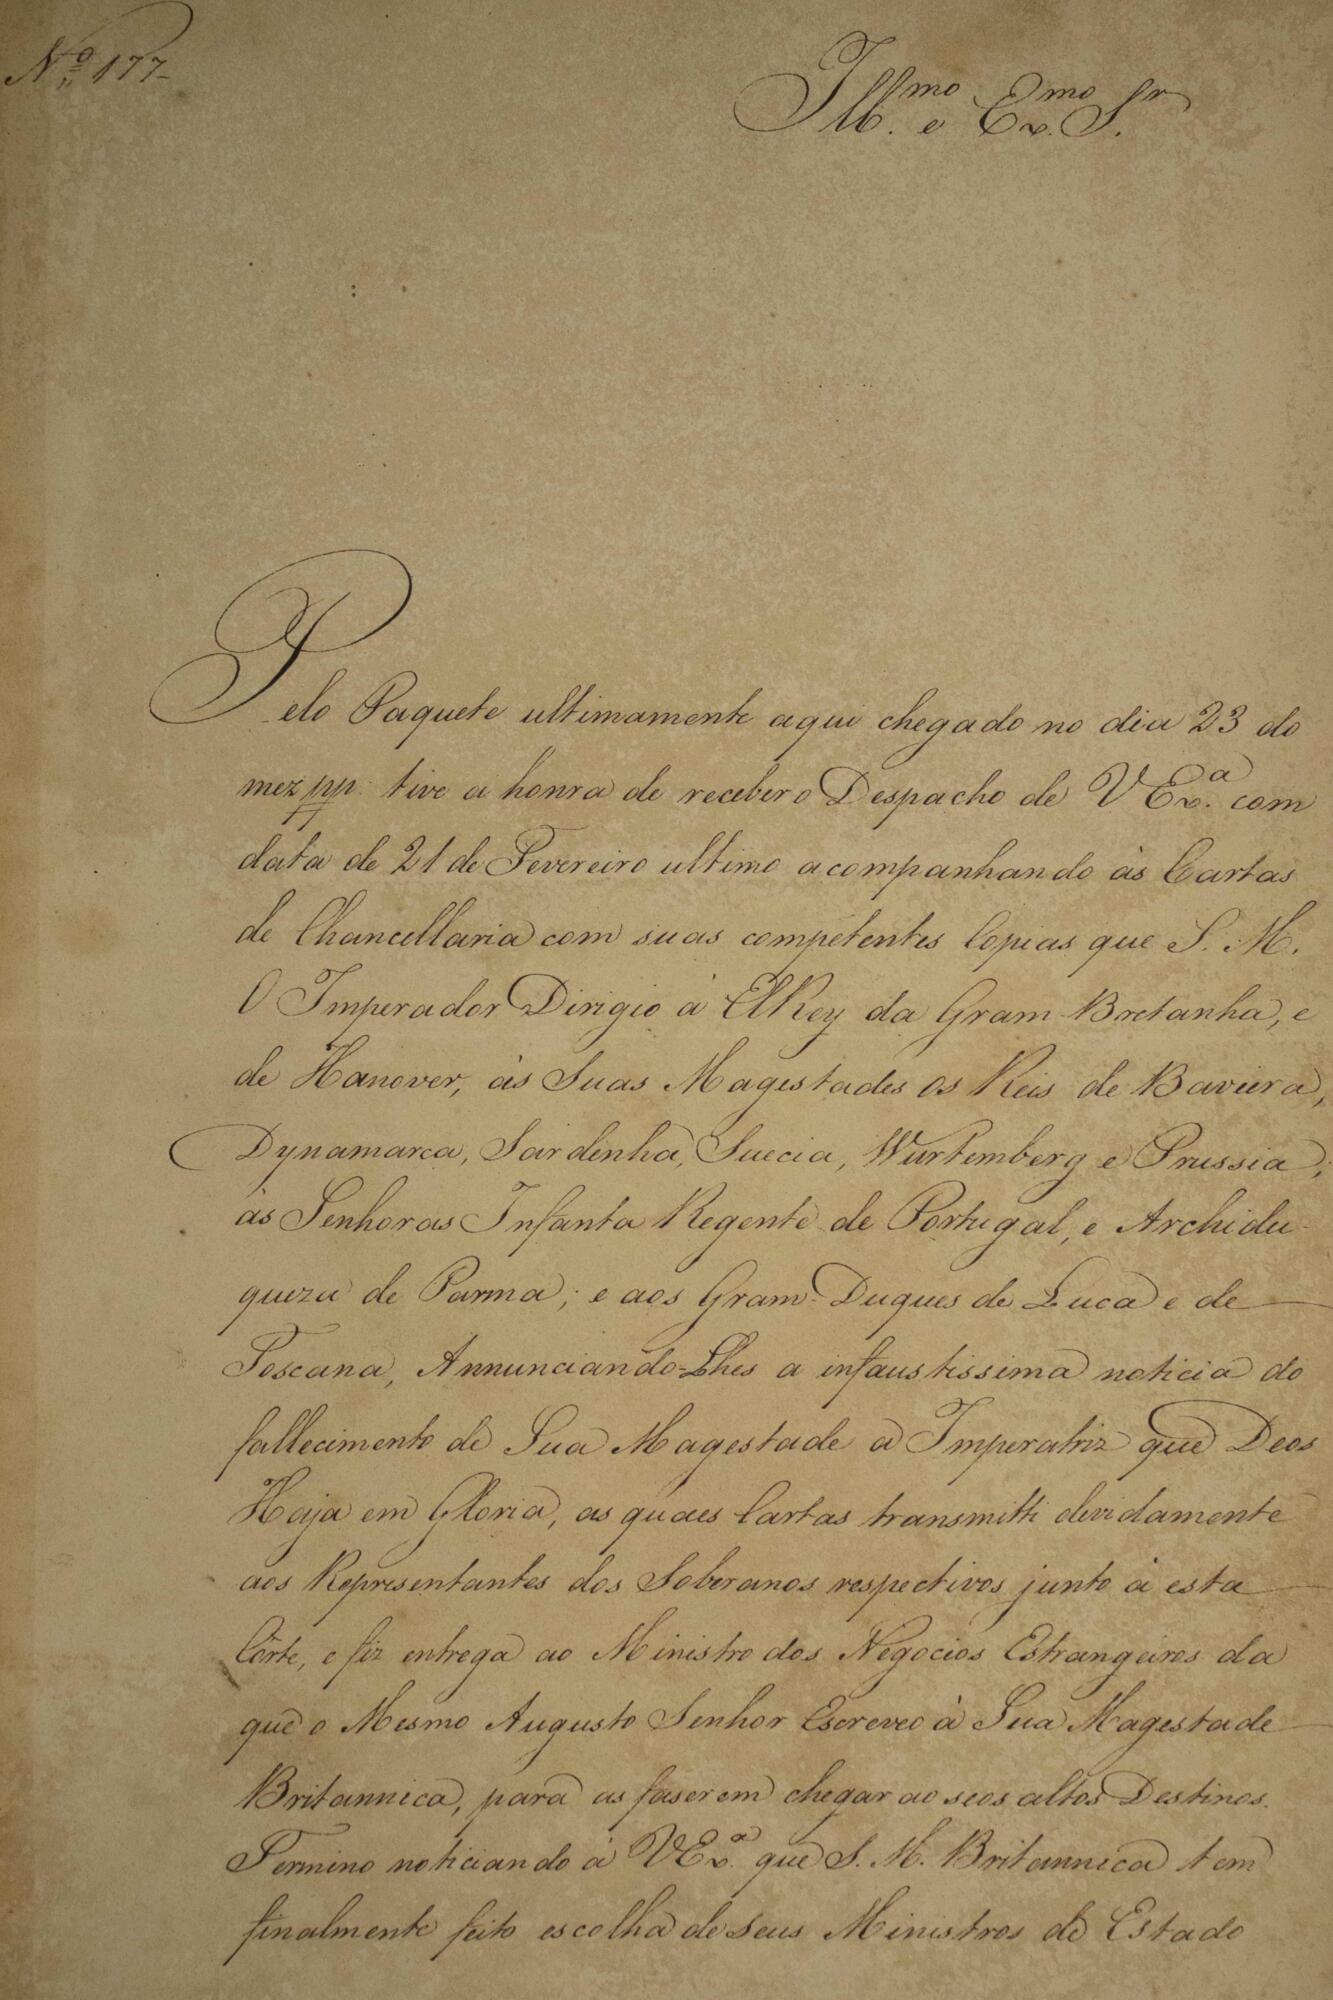 Nº 177
Illmo. e Exmo. Sr.
Pelo Paquete ultimamente aqui chegado no dia 23 do
mez pp. tive a honra de receber o Despacho de VExa. com
data de 21 de Fevereiro ultimo acompanhando às Cartas
de Chancellaria com suas competentes Copias que S. M.
O Imperador Dirigio à ElRey da Gram Bretanha, e
de Hanover, às Suas Magestades os Reis de Baviera,
Dynamarca, Sardenha, Suecia, Wurtemberg e Prussia;
às Senhoras Infanta Regente de Portugal, e Archidu-
queza de Parma; e aos Gram-Duques de Luca e de
Toscana, Annunciando-Lhes a infaustissima noticia do
fallecimento de Sua Magestade a Imperatriz que Deos
Haja em Gloria, as quaes Cartas transmitti devidamente
aos Representantes dos Soberanos respectivos junto à esta
Côrte, e fiz entrega ao Ministro dos Negocios Estrangeiros da
que o Mesmo Augusto Senhor Escreveo à Sua Magestade
Britannica, para as faserem chegar ao seos altos Destinos.
Termino noticiando à VExa. que S. M. Britannica tem
finalmente feito escolha de seus Ministros de Estado